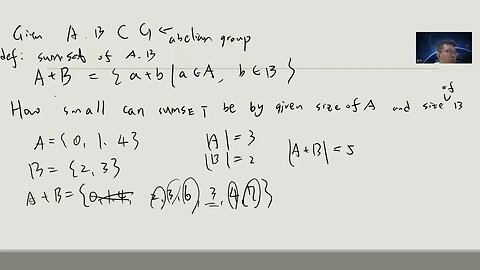 Given A, B ⊂ G ← abelian group
def: sumset of A, B
A+B = { a+b | a∈A, b∈B }
How small can sumset be by given size of A and size of B
A = {0, 1, 4} |A| = 3
B = {2, 3} |B| = 2 |A+B| = 5
A+B = { 2, 3, 6, 3, 4, 7 }